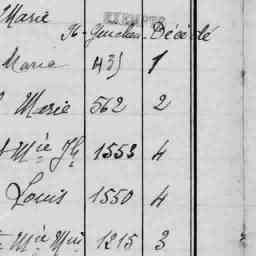 Marie
EXEMPTS
Décédé
Marie 435 1
Marie 562 2
Mie 1553 4
Louis 1550 4
Mie 1215 3